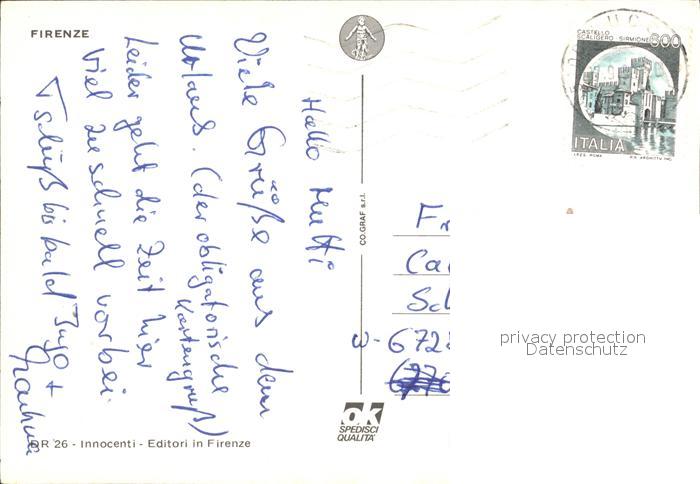 FIRENZE
Hallo Mutti
Viele Grüße aus dem
Urlaub. (der obligatorische
Kartengruß)
Leider geht die Zeit hier
viel zu schnell vorbei.
Tschüß bis bald Ingo +
CASTELLO
SCALIGERO - SIRMIONE
800
ITALIA
I.P.Z.S. ROMA
CO.GRAF s.r.l.
Fr
Ca
Sch
W-672
privacy protection
Datenschutz
ok
SPEDISCI
QUALITA'
OR 26 - Innocenti - Editori in Firenze